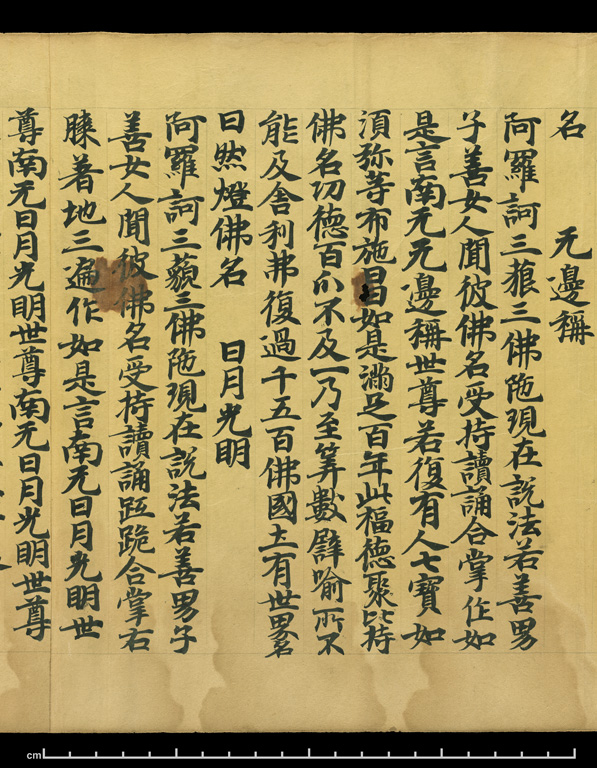 名　　无邊稱
阿羅訶三狼三佛陁現在說法若善男
子善女人聞彼佛名受持讀誦合掌作如
是言南无无邊稱世尊若復有人七寶如
須弥等布施日日如是滿足百年此福德聚比持
佛名功德百分不及一乃至筭數譬喻所不
能及舍利弗復過千五百佛國土有世界名
曰然燈佛名　　日月光明
阿羅訶三藐三佛陁現在說法若善男子
善女人聞彼佛名受持讀誦䟦跪合掌右
膝著地三遍作如是言南无日月光明世
尊南无日月光明世尊南无日月光明世尊